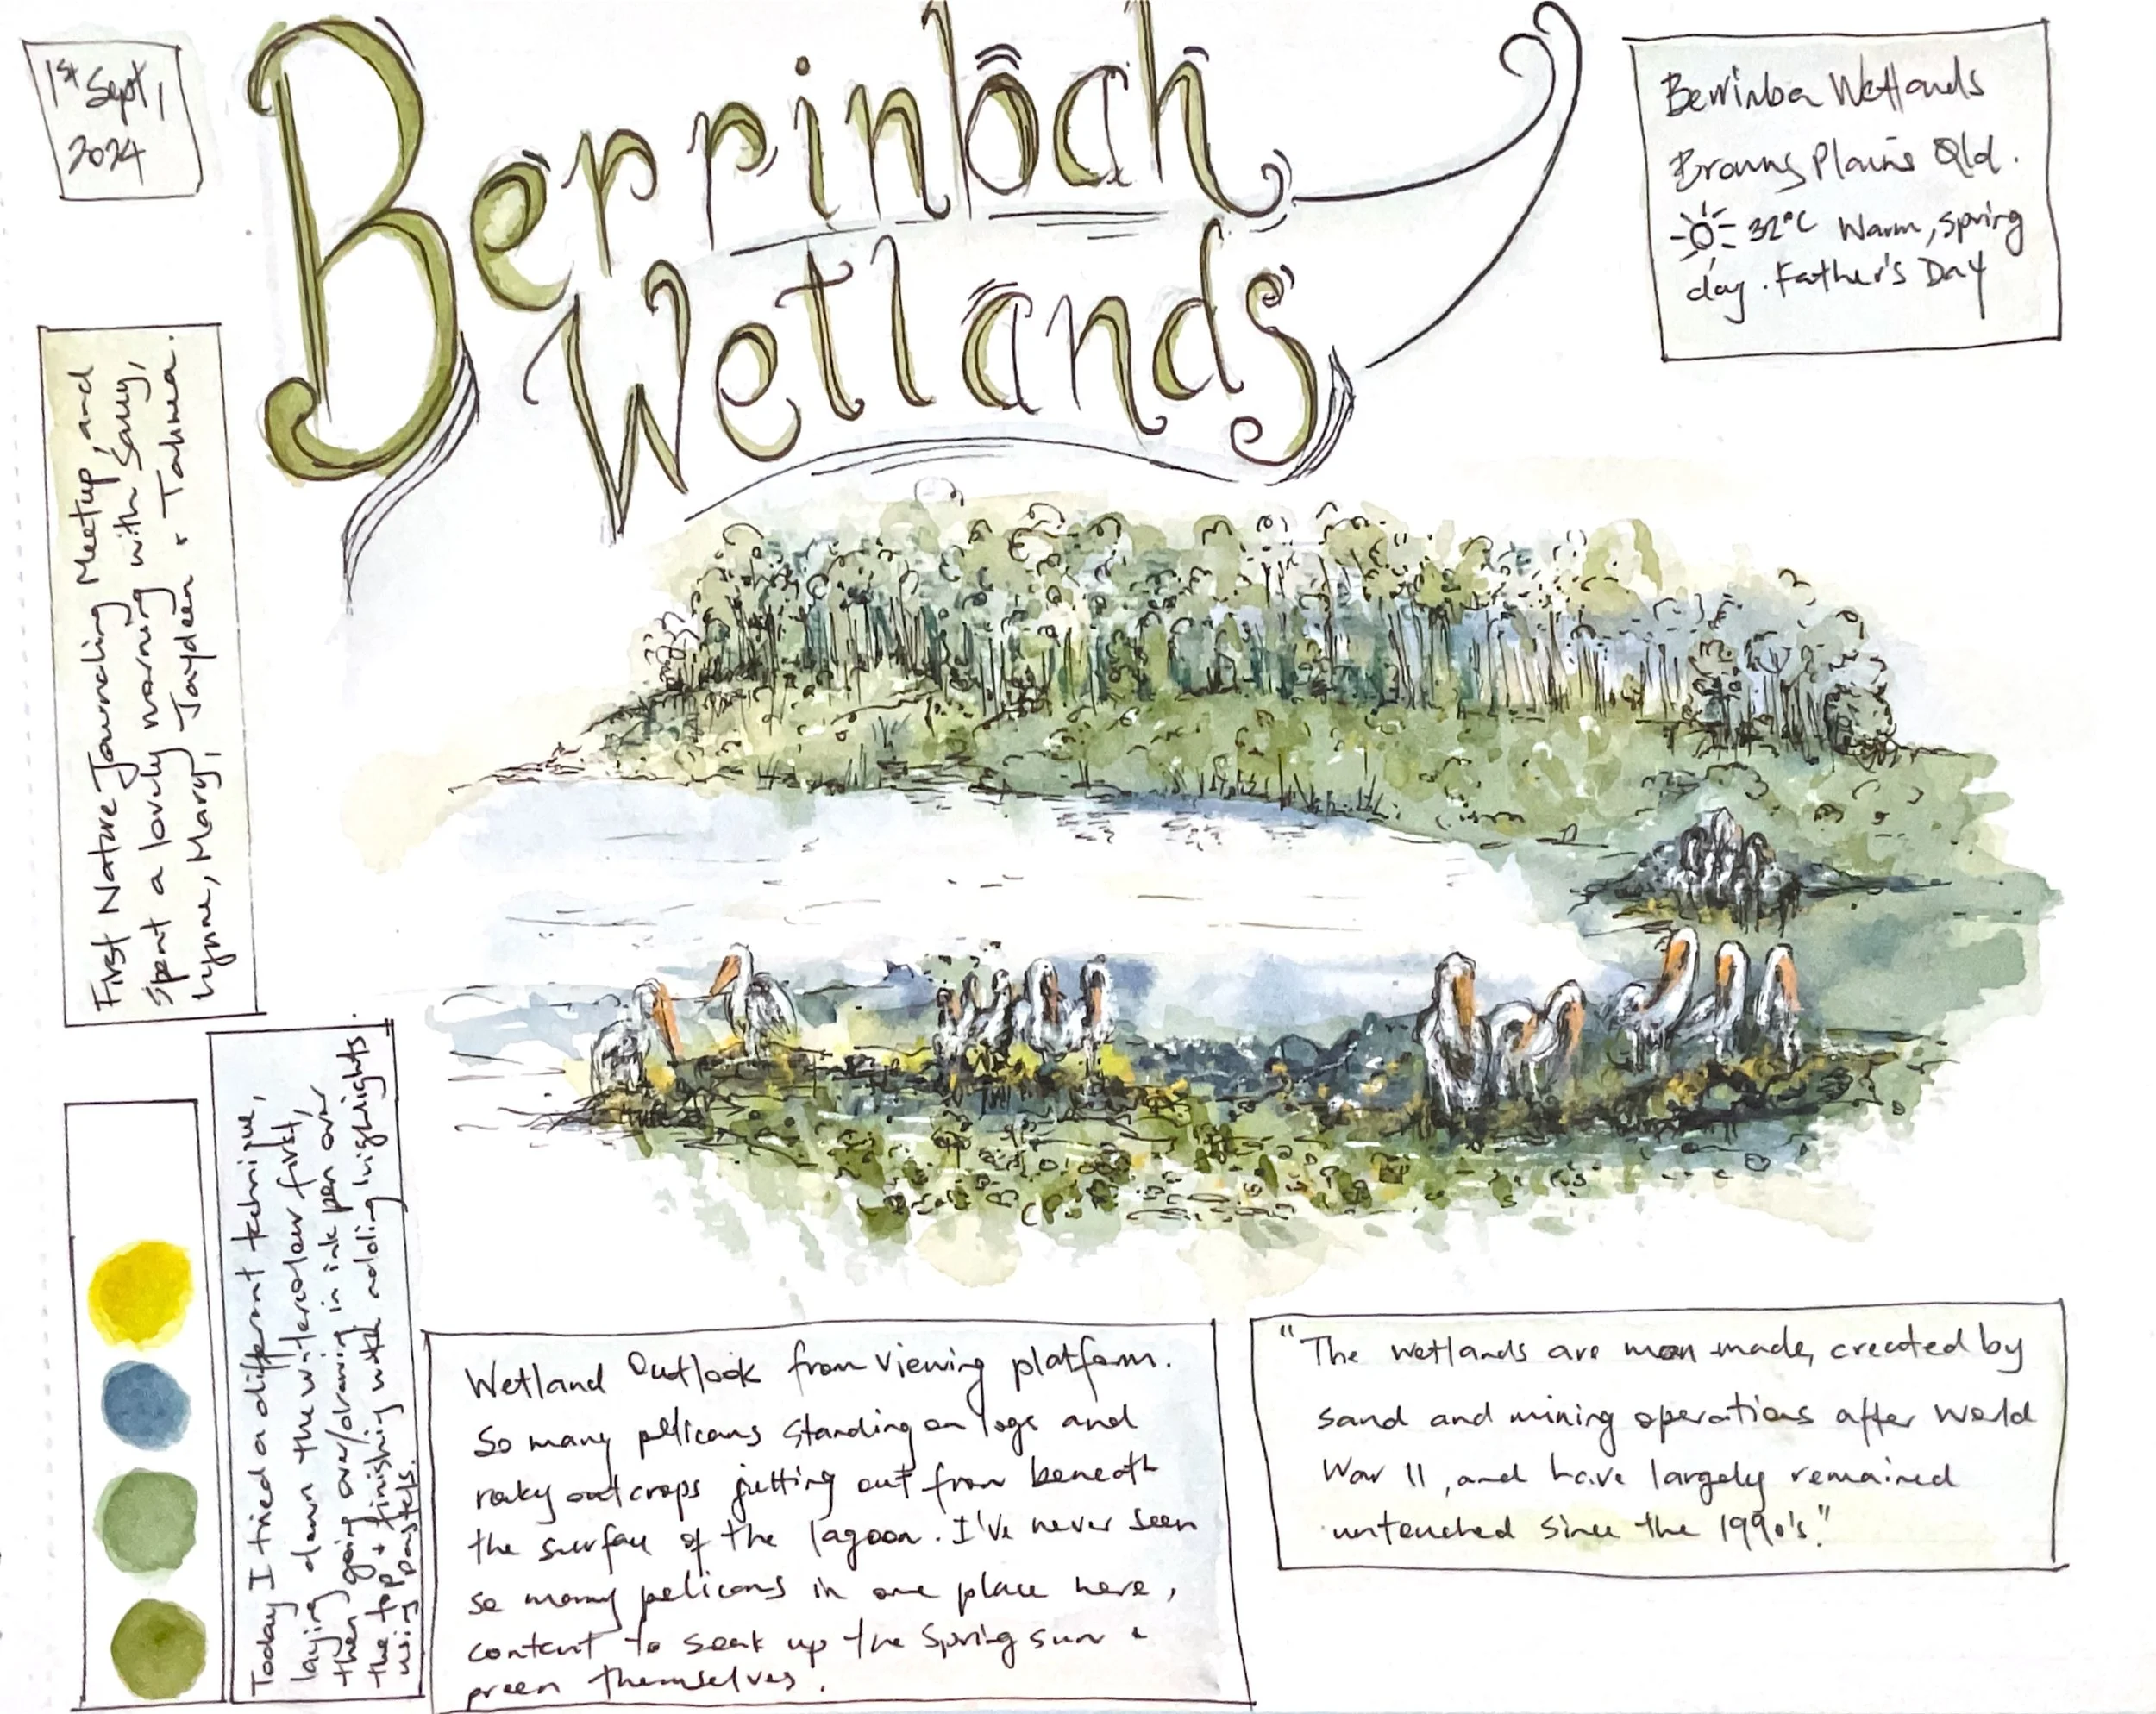 1st Sept,
2024
Berrinbah
Wetlands
Berrinba Wetlands
Browns Plains Qld.
32°C Warm, spring
day. Father's Day
First Nature Journaling Meetup, and
spent a lovely morning with
Lynne, Mary, Jayden + Tahnea.
Today I tried a different technique,
laying down the watercolour first,
then going over/drawing in ink pen over
the top + finishing with adding highlights
using pastels.
Wetland Outlook from viewing platform.
So many pelicans standing on logs and
rocky outcrops jutting out from beneath
the surface of the lagoon. I've never seen
so many pelicans in one place here,
content to soak up the Spring sun &
preen themselves.
"The wetlands are man-made, created by
sand and mining operations after World
War II, and have largely remained
untouched since the 1990's."